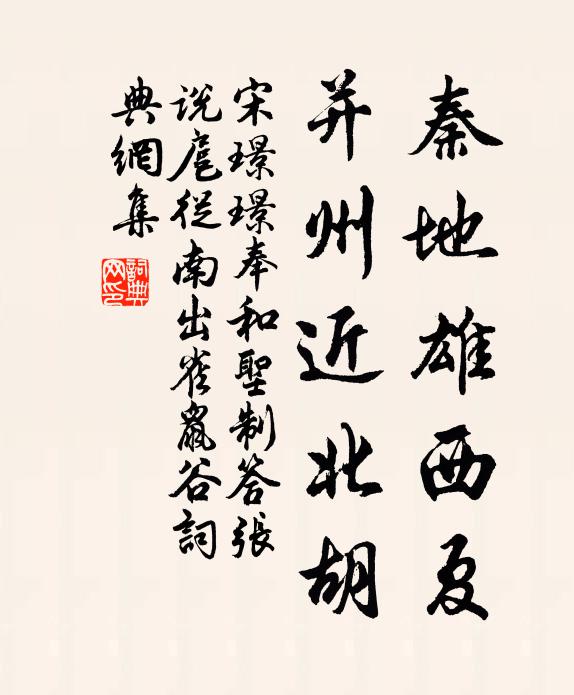 秦地雄西夏
并州近北胡
宋璟璟奉和聖制答張
説扈從南出雀鼠谷詞
典網集
詞典
网印